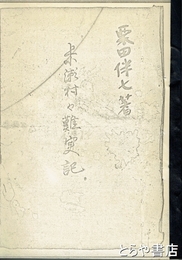 粟田伴七著
米藩村々難更記。
とらや書店